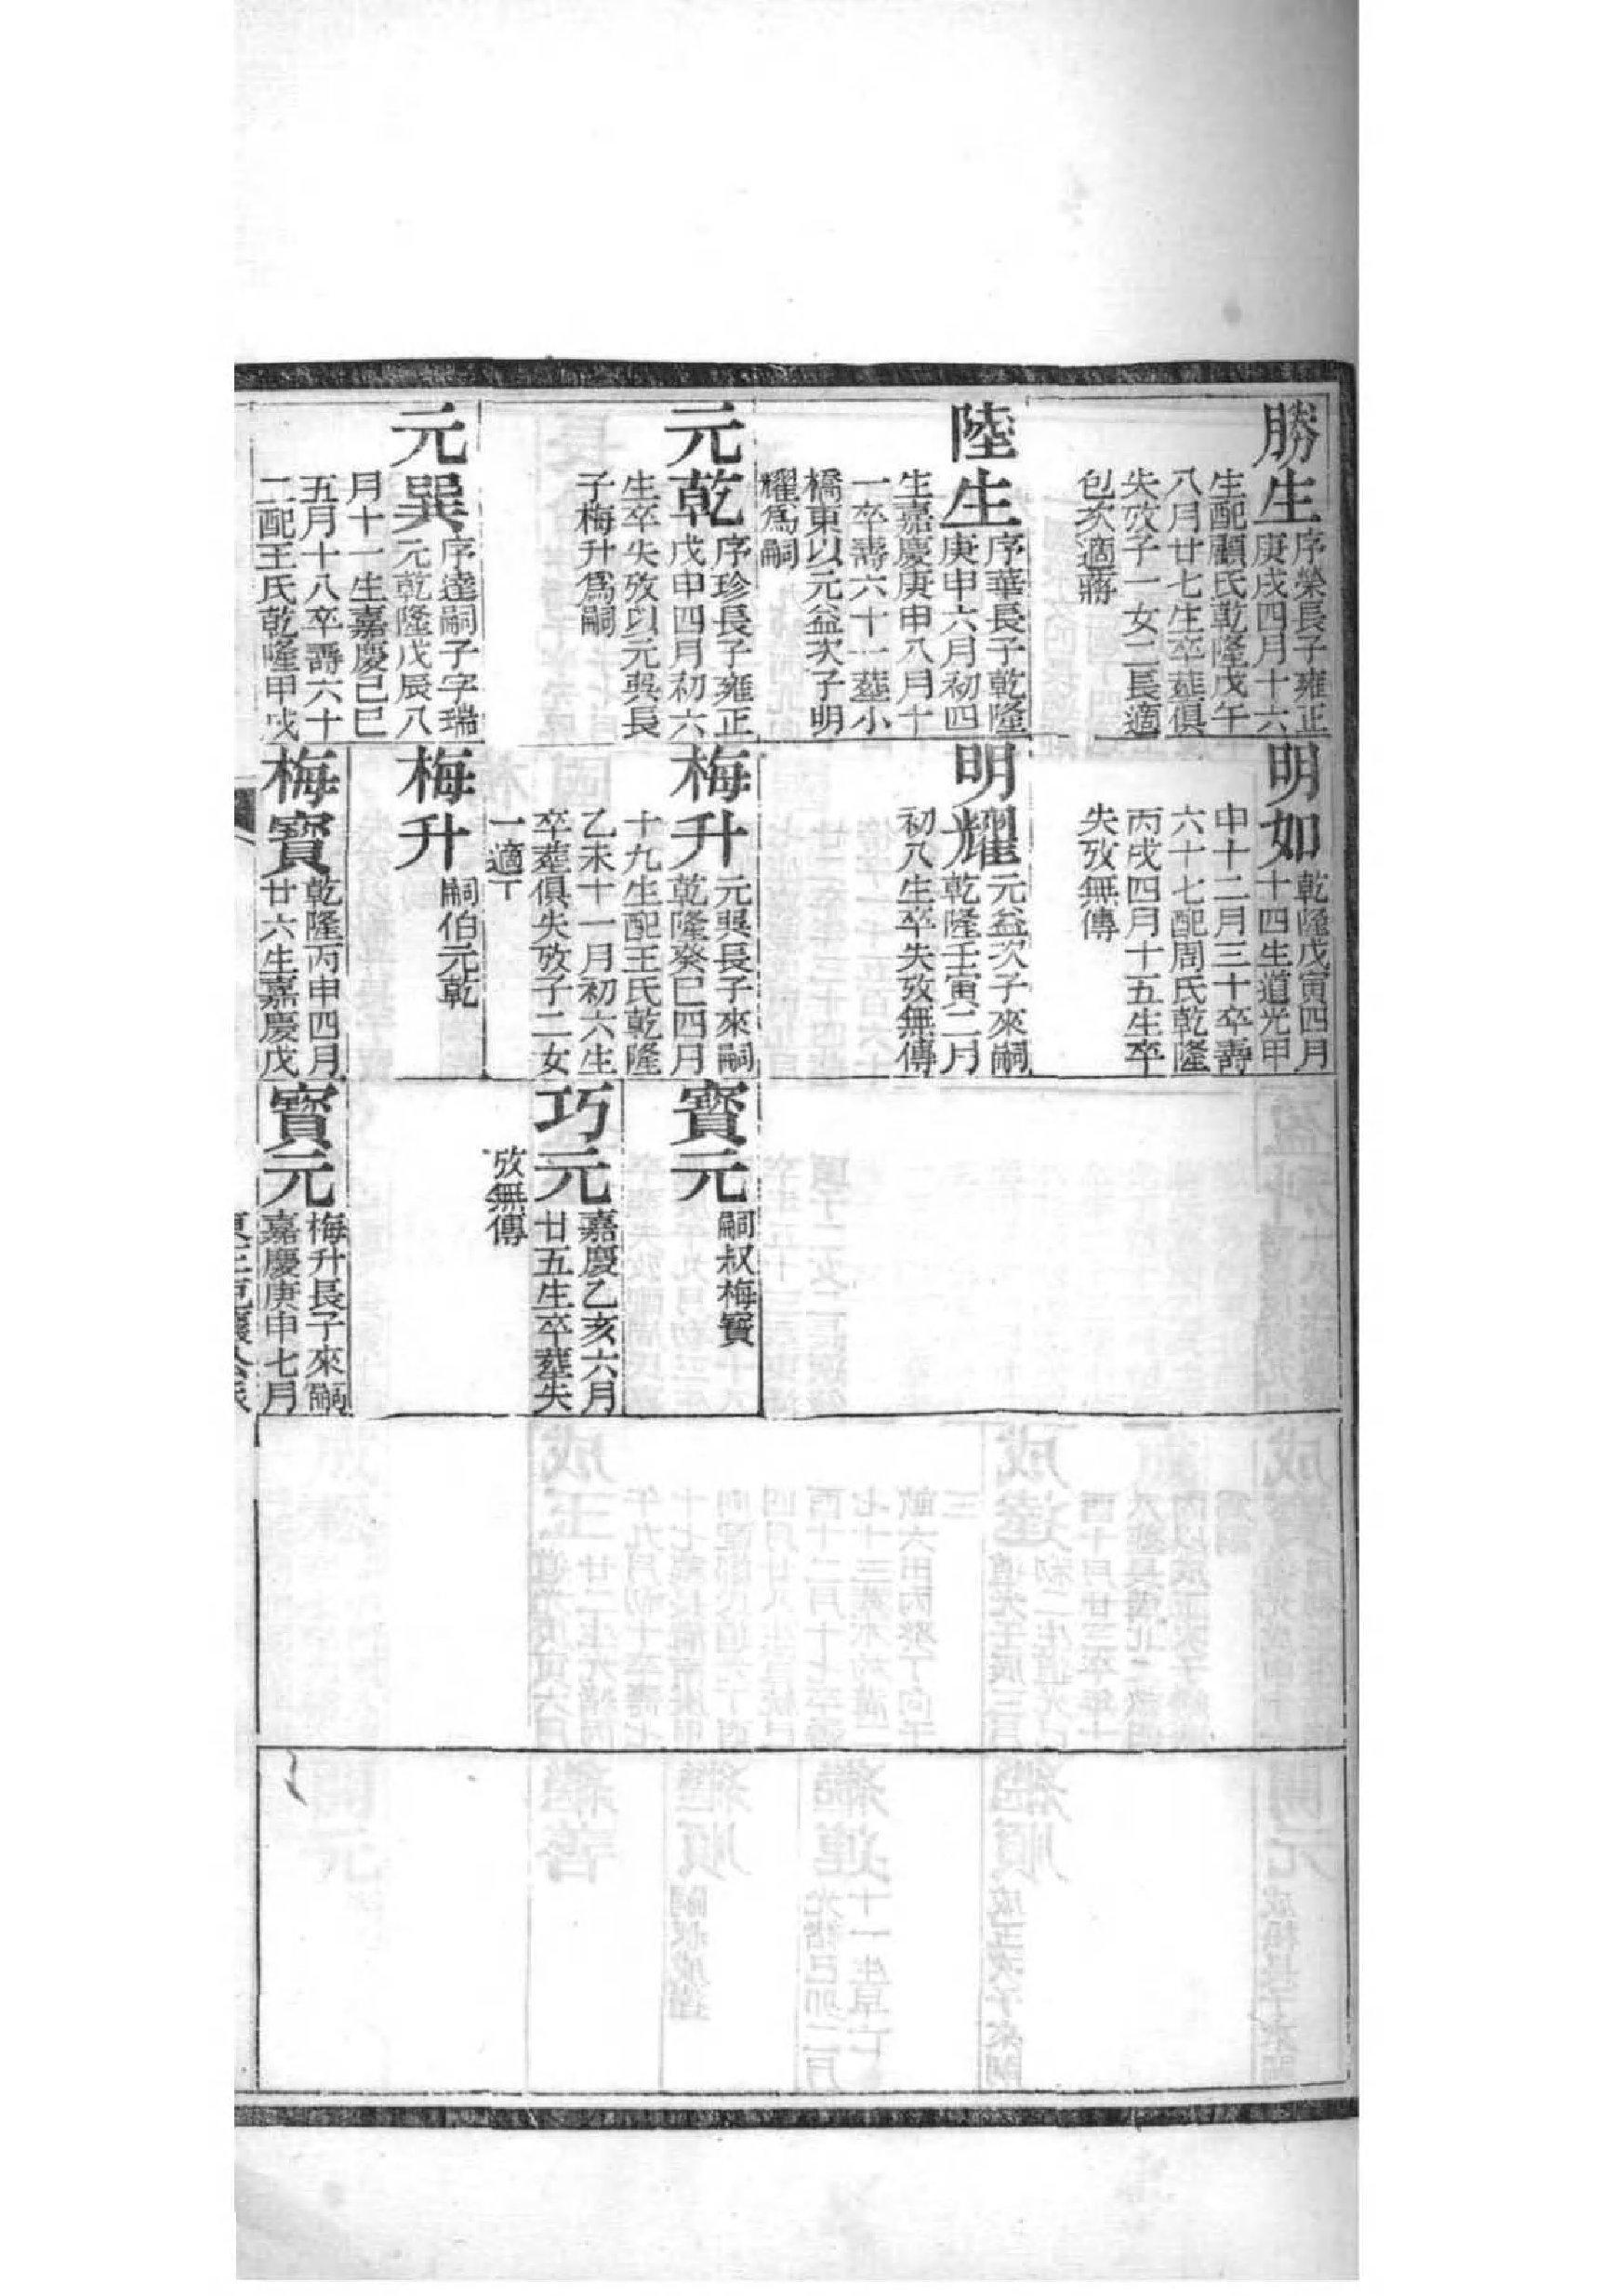 勝生
序榮長子雍正
庚戌四月十六
生配顧氏乾隆戊午
八月廿七生卒葬俱
失攷子一女二長適
包次適蔣
陸生
序華長子乾隆
庚申六月初四
生嘉慶庚申八月十
一卒壽六十一葬小
橋東以元益次子明
耀爲嗣
元乾
序珍長子雍正
戊申四月初六
生卒失攷以元巽長
子梅升爲嗣
元巽
序達嗣子字瑞
元乾隆戊辰八
月十一生嘉慶己巳
五月十八卒壽六十
二配王氏乾隆甲戌
明如
乾隆戊寅四月
十四生道光甲
申十二月三十卒壽
六十七配周氏乾隆
丙戌四月十五生卒
失攷無傳
明耀
元益次子來嗣
乾隆壬寅二月
初八生卒失攷無傳
梅升
元巽長子來嗣
乾隆癸巳四月
十九生配王氏乾隆
乙未十一月初六生
卒葬俱失攷子二女
一適丁
梅升
嗣伯元乾
梅寶
乾隆丙申四月
廿六生嘉慶戊
寶元
嗣叔梅寶
巧元
嘉慶乙亥六月
廿五生卒葬失
攷無傳
寶元
梅升長子來嗣
嘉慶庚申七月